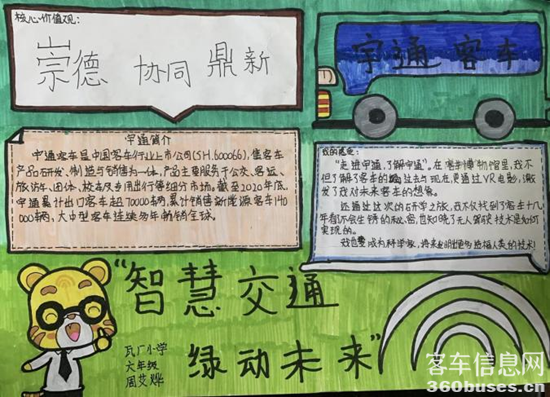 核心价值观:
崇德 协同 鼎新
宇通客车
宇通简介
宇通客车是中国客车行业上市公司(SH.600066),集客车
产品研发、制造与销售为一体,产品主要服务于公交、客运、
旅游、团体、校车及专用出行等细分市场。截至2020年底,
宇通累计出口客车超70000辆,累计销售新能源客车140
000辆,大中型客车连续多年畅销全球。
我的感受:
"走进宇通,了解宇通"。在客车博物馆里,我不
但了解了客车的过去与现在,更通过VR电影,激
发了我对未来客车的想象。
还通过这次的研学之旅,我不仅找到了客车十几
年都不会生锈的秘密,也知晓了无人驾驶技术是如何
实现的。
我想要成为科学家,将来
人类的技术!
"智慧交通
绿动未来"
瓦厂小学
六年级
周艾烨
客车信息网
360buses.cn